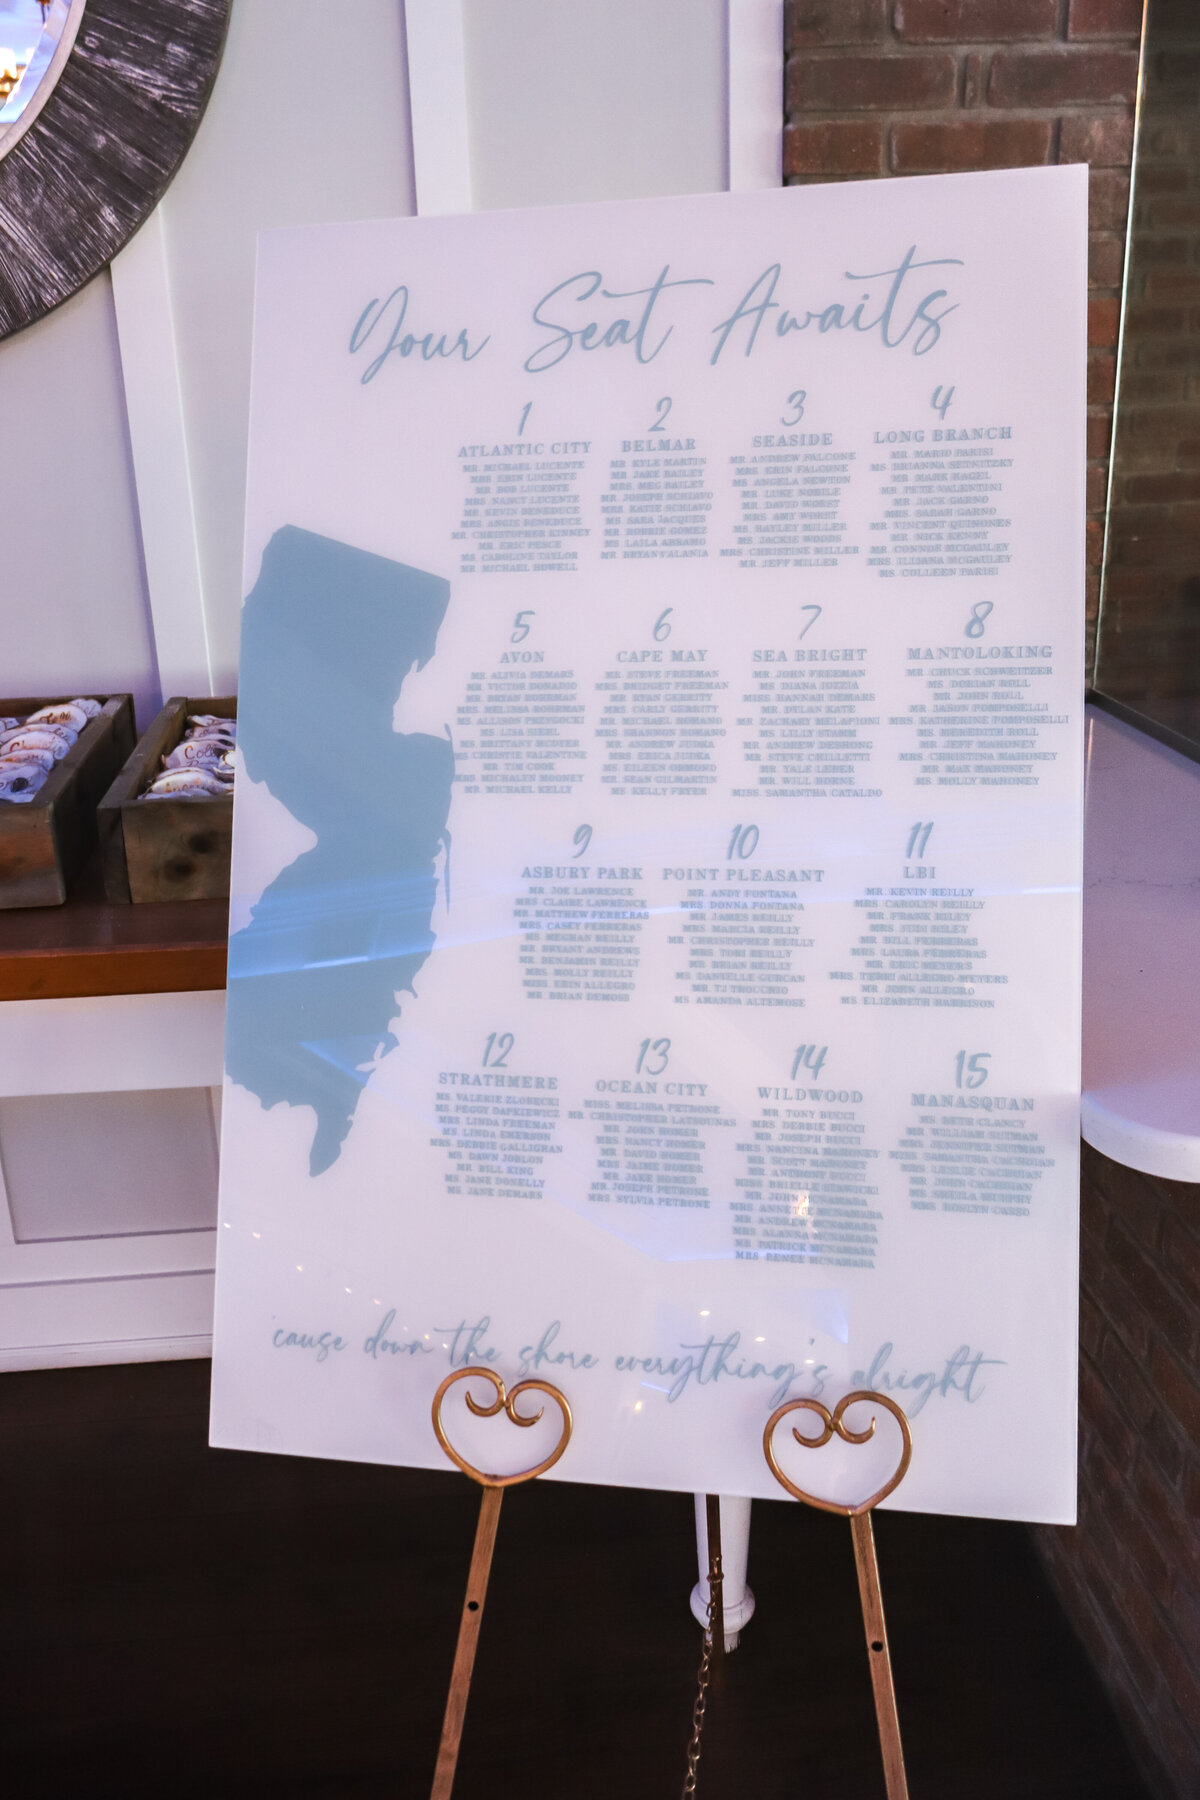 Your Seat Awaits
1
ATLANTIC CITY
MR. MICHAEL LUCENTE
MRS ERIN LUCENTE
MR BOB LUCENTE
MRS NANCY LUCENTE
MR. KEVIN BENEDUCE
MRS. ANGIE BENEDUCE
MR CHRISTOPHER KINNEY
MR. ERIC PESCE
MS CAROLINE TAYLOR
MR. MICHAEL HOWELL
2
BELMAR
MR KYLE MARTIN
MR. JAKE BAILEY
MRS. MEG BAILEY
MR. JOSEPH SCHIAVO
MRS KATIE SCHIAVO
MS SARA JACQUES
MR. ROBBIE GOMEZ
MS LAILA ABSAMO
MR BRYANVALANIA
3
SEASIDE
MR ANDREW FALCONE
MRS. ERIN FALCONE
MS ANGELA NEWTON
MR. LUKE NOBILE
MR. DAVID WORST
MRS AMY WORST
MS. HAYLEY MILLER
MS JACKIE WOODS
MRS CHRISTINE MILLER
MR JEFF MILLER
4
LONG BRANCH
MR. MARIO PARISI
MS BRIANNA SETNITZKY
MR. MARK HAGEL
MR. PETE VALENTINI
MR. JACK GARNO
MRS. SARAH GARNO
MR. VINCENT QUINONES
MR. NICK KENNY
MR. CONNOR MCGAULEY
MRS. ILIJANA MCGAULEY
MS COLLEEN PARISI
5
AVON
MR. ALIVIA DEMARS
MR. VICTOR DONADIO
MR. BRYAN ROHRMAN
MRS. MELISSA ROHRMAN
MS. ALLISON PRZYGOCKI
MS. LISA SIEHL
MS. BRITTANY MCDYER
MS CHRISTIE VALENTINE
MR TIM COOK
MRS MICHALYN MOONEY
MR. MICHAEL KELLY
6
CAPE MAY
MR. STEVE FREEMAN
MRS. BRIDGET FREEMAN
MR RYAN GERRITY
MRS. CARLY GERRITY
MR. MICHAEL ROMANO
MRS SHANNON ROMANO
MR. ANDREW JUDKA
MRS. ERICA JUDKA
MS. EILEEN ORMOND
MR. SEAN GILMARTIN
MS. KELLY FRYER
7
SEA BRIGHT
MR. JOHN FREEMAN
MS. DIANA IOZZIA
MISS. HANNAH DEMARS
MR. DYLAN KATE
MR. ZACHARY MELAPIONI
MS. LILLY STAMM
MR. ANDREW DESHONG
MR. STEVE CHILLETTI
MR. YALE LEBER
MR. WILL HORNE
MISS. SAMANTHA CATALDO
8
MANTOLOKING
MR. CHUCK SCHWEITZER
MS. DORIAN ROLL
MR. JOHN ROLL
MR. JASON POMPOSELLI
MRS. KATHERINE POMPOSELLI
MS. MEREDITH ROLL
MR. JEFF MAHONEY
MRS. CHRISTINA MAHONEY
MR. MAX MAHONEY
MS. MOLLY MAHONEY
9
ASBURY PARK
MR. JOE LAWRENCE
MRS. CLAIRE LAWRENCE
MR. MATTHEW FERRERAS
MRS. CASEY FERRERAS
MS. MEGHAN REILLY
MR. BRYANT ANDREWS
MR. BENJAMIN REILLY
MRS. MOLLY REILLY
MISS. ERIN ALLEGRO
MR. BRIAN DEMOSS
10
POINT PLEASANT
MR. ANDY FONTANA
MRS. DONNA FONTANA
MR. JAMES REILLY
MRS. MARCIA REILLY
MR. CHRISTOPHER REILLY
MRS. TORI REILLY
MR. BRIAN REILLY
MS. DANIELLE GURCAN
MR. TJ TROCCHIO
MS. AMANDA ALTEMOSE
11
LBI
MR. KEVIN REILLY
MRS. CAROLYN REILLY
MR. FRANK RILEY
MRS. JUDI RILEY
MR. BILL FERRERAS
MRS. LAURA FERRERAS
MR. ERIC MEYERS
MRS. TERRI ALLEGRO-MEYERS
MR. JOHN ALLEGRO
MS. ELIZABETH HARRISON
12
STRATHMERE
MS. VALERIE ZLOBECKI
MS. PEGGY DAPKIEWICZ
MRS. LINDA FREEMAN
MS. LINDA EMERSON
MRS. DEBBIE GALLIGHAN
MS. DAWN JOBLON
MR. BILL KING
MS. JANE DONELLY
MS. JANE DEMARS
13
OCEAN CITY
MISS. MELISSA PETRONE
MR. CHRISTOPHER LATSOUNAS
MR. JOHN HOMER
MRS. NANCY HOMER
MR. DAVID HOMER
MRS. JAIME HOMER
MR. JAKE HOMER
MR. JOSEPH PETRONE
MRS. SYLVIA PETRONE
14
WILDWOOD
MR. TONY BUCCI
MRS. DEBBIE BUCCI
MR. JOSEPH BUCCI
MRS. NANCINA MAHONEY
MR. SCOTT MAHONEY
MR. ANTHONY BUCCI
MISS. BRIELLE
MR. JOHN MCNAMARA
MRS. ANNETTE MCNAMARA
MR. ANDREW MCNAMARA
MRS. ALANNA MCNAMARA
MR. PATRICK MCNAMARA
MRS. RENEE MCNAMARA
15
MANASQUAN
MS. BETH CLANCY
MR. WILLIAM SUTMAN
MRS. JENNIFER SUTMAN
MISS. SAMANTHA
MRS. LESLIE
MR. JOHN
MS. SHEILA MURPHY
MRS. ROSLYN CASSO
'cause down the shore everything's alright